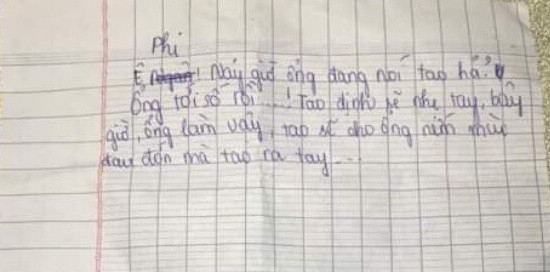 Phi
Ê ! Nãy giờ ông đang nói tao hả?
Ông tới số rồi...! Tao định sẽ nhẹ tay, bây
giờ, ông làm vậy, tao sẽ cho ông nếm mùi
đau đớn mà tao ra tay...